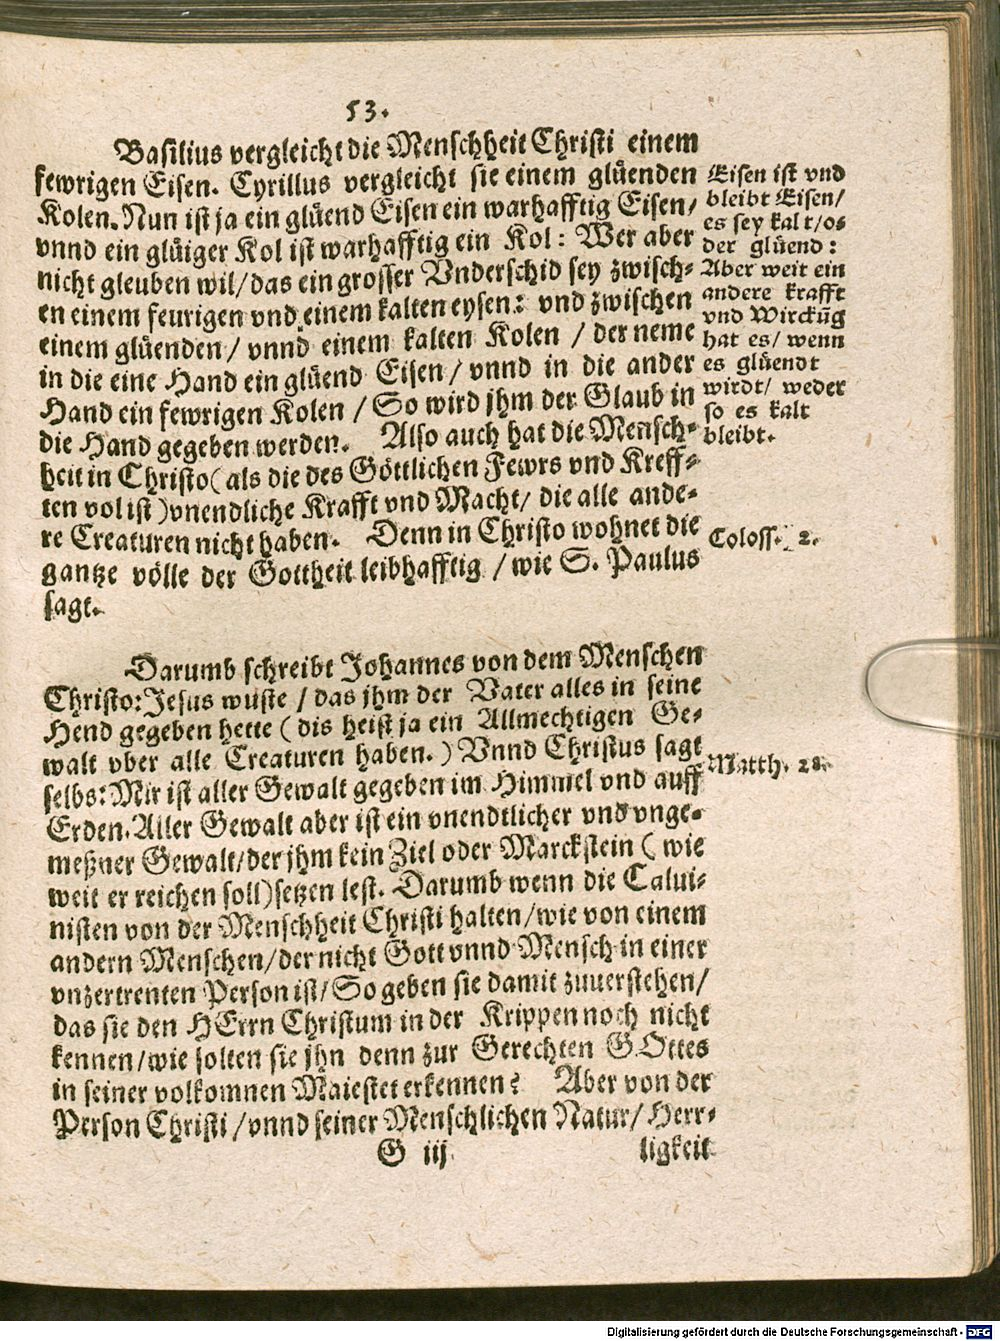 53.
Basilius vergleicht die Menschheit Christi einem
fewrigen Eisen. Cyrillus vergleicht sie einem glüenden
Kolen. Nun ist ja ein glüend Eisen ein warhafftig Eisen/
vnnd ein glüiger Kol ist warhafftig ein Kol: Wer aber
nicht gleuben wil/das ein grosser Vnderschid sey zwisch-
en einem feurigen vnd einem kalten eysen: vnd zwischen
einem glüenden/ vnnd einem kalten Kolen / der neme
in die eine Hand ein glüend Eisen/ vnnd in die ander
Hand ein fewrigen Kolen / So wird jhm der Glaub in
die Hand gegeben werden. Also auch hat die Mensch-
heit in Christo( als die des Göttlichen Fewrs vnd Kreff-
ten vol ist )vnendliche Krafft vnd Macht/ die alle ande-
re Creaturen nicht haben. Denn in Christo wohnet die
gantze völle der Gottheit leibhafftig /wie S. Paulus
sagt.
Eisen ist vnd
bleibt Eisen/
es sey kalt/o-
der glüend:
Aber weit ein
andere krafft
vnd Wirckūg
hat es/ wenn
es glüendt
wirdt/ weder
so es kalt
bleibt.
Coloss. 2.
Darumb schreibt Johannes von dem Menschen
Christo: Jesus wuste /das jhm der Vater alles in seine
Hend gegeben hette ( dis heist ja ein Allmechtigen Ge-
walt vber alle Creaturen haben.) Vnnd Christus sagt
selbs: Mir ist aller Gewalt gegeben im Himmel vnd auff
Erden. Aller Gewalt aber ist ein vnendtlicher vnd vnge-
meßner Gewalt/der jhm kein Ziel oder Marckstein ( wie
weit er reichen soll)setzen lest. Darumb wenn die Calui-
nisten von der Menschheit Christi halten/wie von einem
andern Menschen/der nicht Gott vnnd Mensch in einer
vnzertrenten Person ist/So geben sie damit zuuerstehen/
das sie den HErrn Christum in der Krippen noch nicht
kennen/wie solten sie jhn denn zur Gerechten GOttes
in seiner volkomnen Maiestet erkennen? Aber von der
Person Christi /vnnd seiner Menschlichen Natur/ Herr-
Matth. 28.
G iij
ligkeit
Digitalisierung gefördert durch die Deutsche Forschungsgemeinschaft - DFG